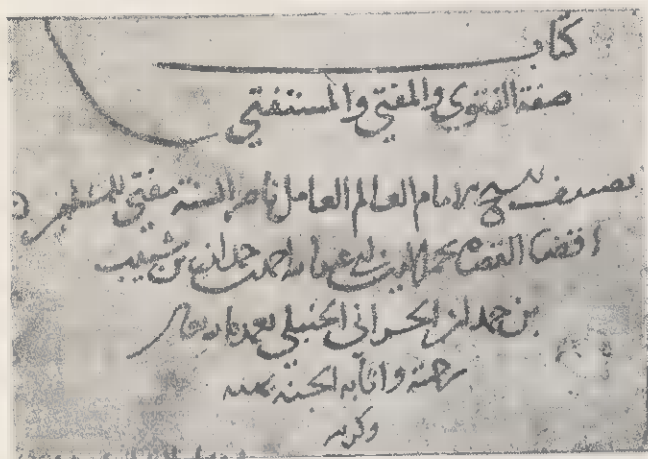 كتاب
صفة الفتوي والمفتي والمستفتي
تصنيف الشيخ الامام العالم العامل ناصر السنة مفتي المسلمين
اقضا القضاه نجم الدين ابي عبد الله احمد بن حمدان بن شبيب
بن حمدان الحراني الحنبلي تغمده الله تعالى
برحمته واثابه الجنة بمنه
وكرمه